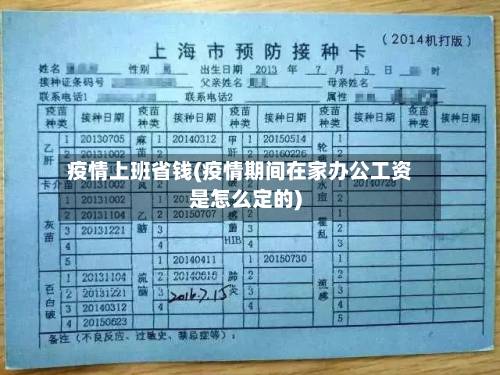 （2014机打版）
上海市预防接种卡
姓名 性别 出生日期 2013 年 7 月 5 日 时
接种证条码号 父亲姓名 母亲姓名
联系电话1 联系电话2 属性
疫苗种类 接种日期 疫苗种类 接种日期 疫苗种类 接种日期 疫苗种类 接种日期 疫苗种类 接种日期
乙肝 1 20130705 1 20140312 甲肝 1 20150514 轮 1
2 20131002
疫情上班省钱(疫情期间在家办公工资
是怎么定的)
卡介苗 20140728
灰苗 1 20131002
2 20131104 乙脑 2 20150707
3 20131221 HIB 霍乱
4
5 1 20140411 1 20150730
百白破 1 20131104 流脑 2 20140616 肺炎 2 流感
2 20131221 3 2016.7.15 3
3 20140312 4
4 20150623 5
备注（不良反应、过敏史、禁忌症等）：